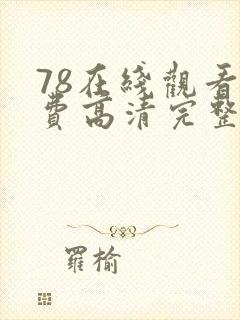 78在綫觀看
費高清完整
羅榆